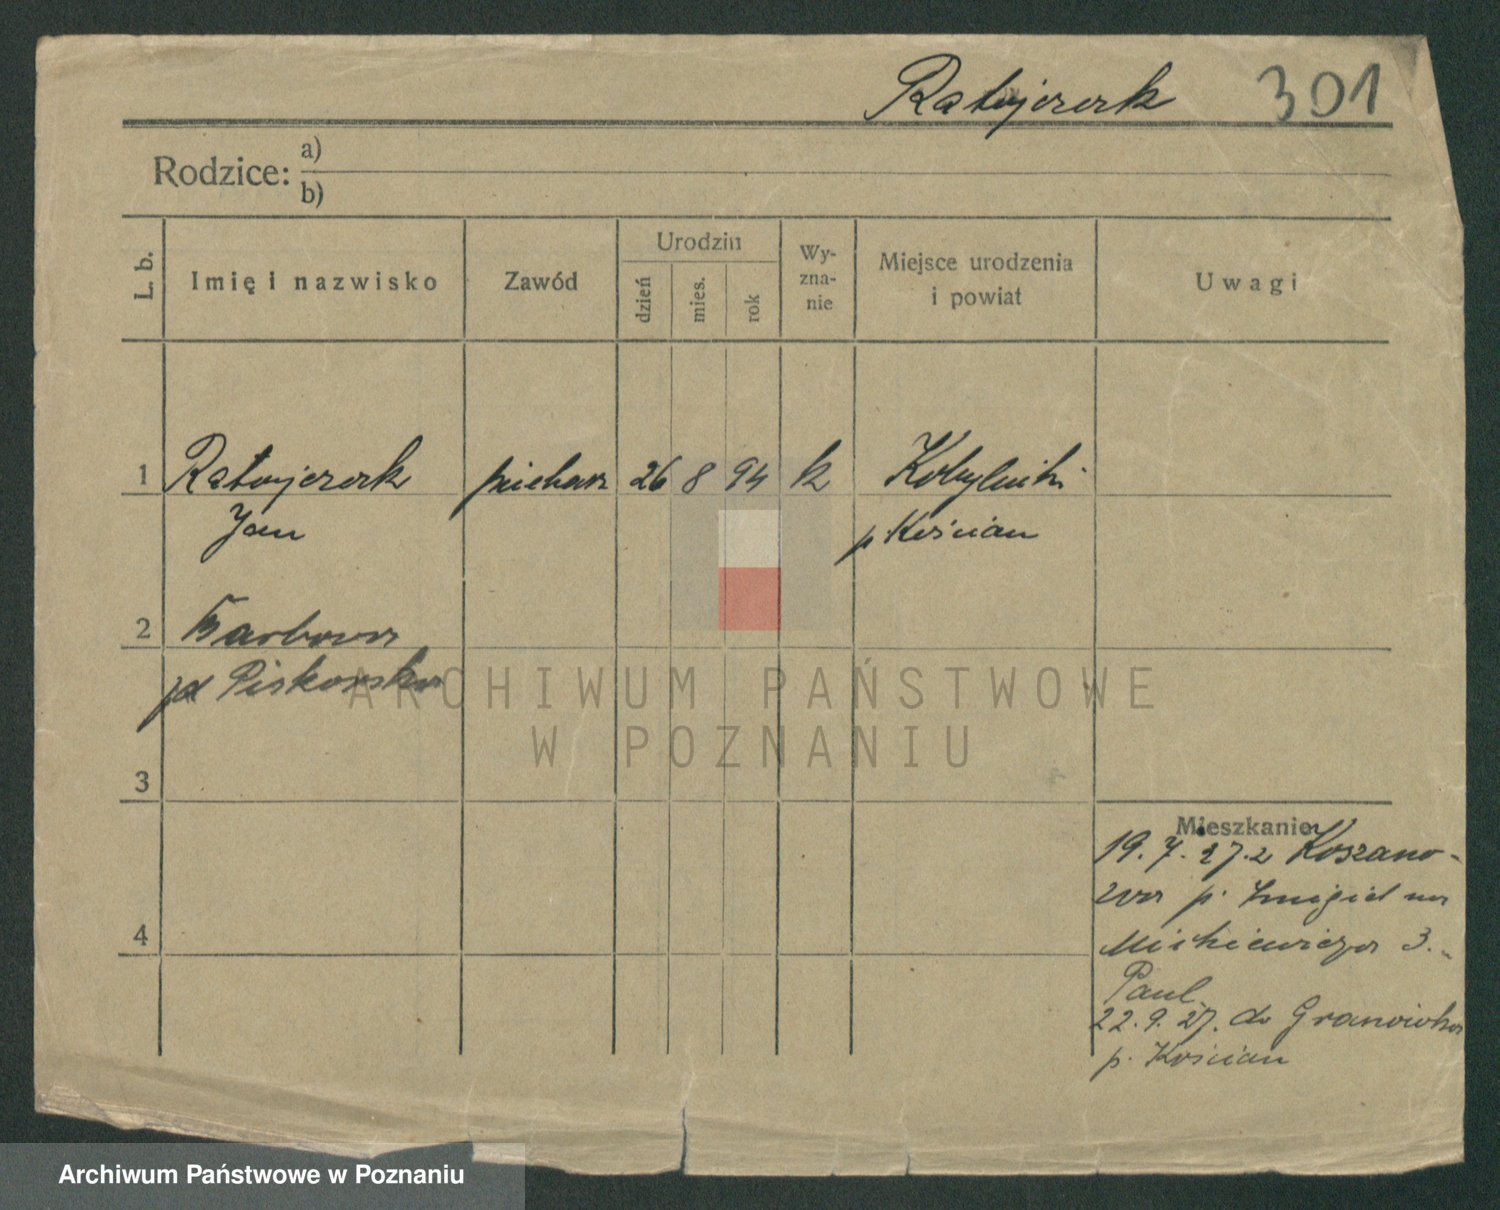 Ratajczak 301
Rodzice: a)
b)
L. b. Imię i nazwisko Zawód Urodzin dzień mies. rok Wyznanie Miejsce urodzenia i powiat Uwagi
1 Ratajczak piekarz 26 8 94 k Kobylniki
Jan p Kościan
2 Barbara
zd Piskorska
3
4
Mieszkanie
19.7.27. z Koszano-
wa p. Śmigiel na
Mickiewicza 3.
Paul
22.9.27. do Granówka
p. Kościan
ARCHIWUM PAŃSTWOWE
W POZNANIU
Archiwum Państwowe w Poznaniu